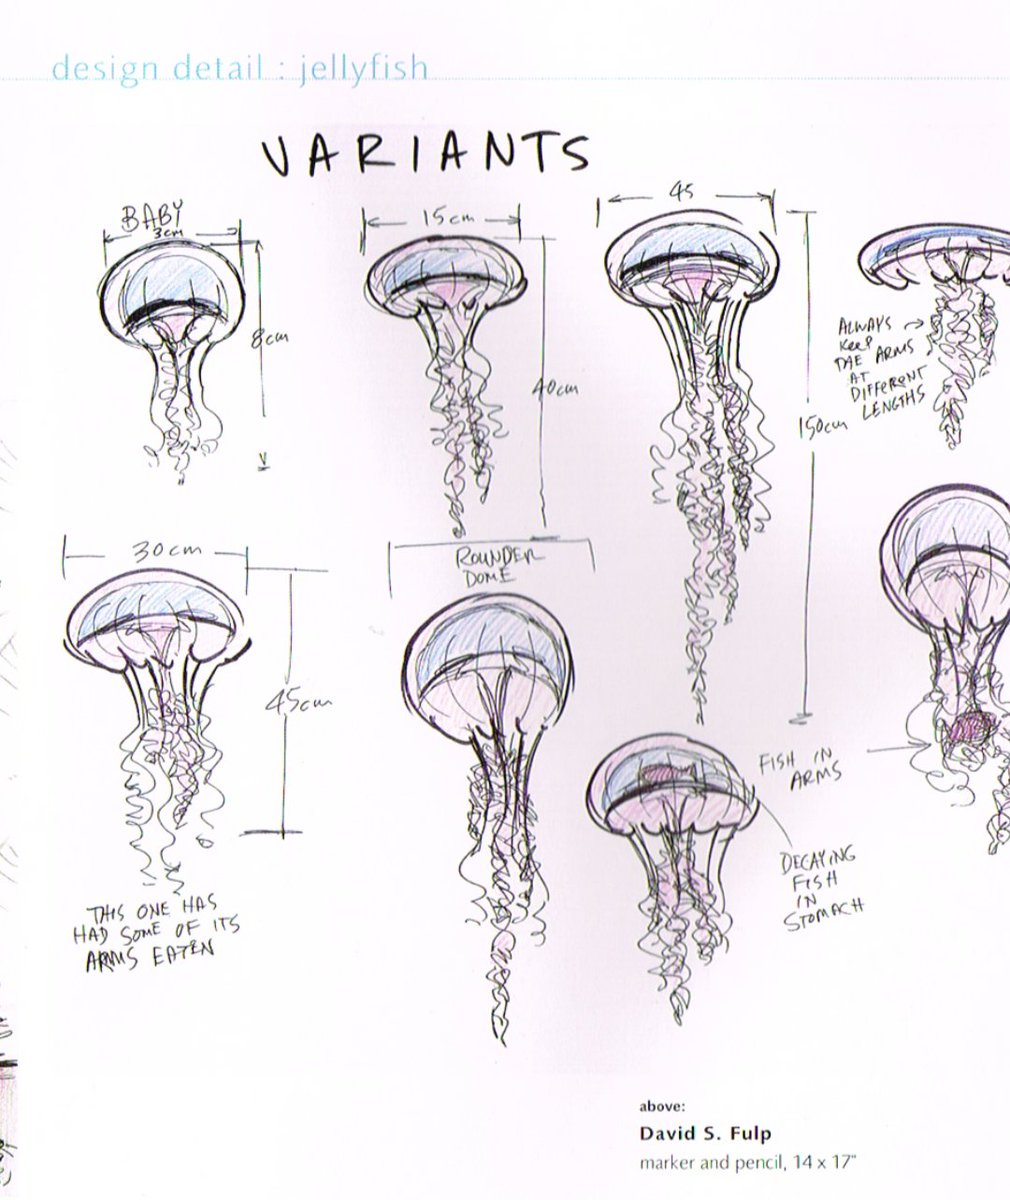 design detail : jellyfish
VARIANTS
BABY
3cm
8cm
15cm
40cm
45
150cm
ALWAYS
KEEP
THE ARMS
AT
DIFFERENT
LENGTHS
30cm
45cm
THIS ONE HAS
HAD SOME OF ITS
ARMS EATEN
ROUNDER
DOME
FISH IN
ARMS
DECAYING
FISH
IN
STOMACH
above:
David S. Fulp
marker and pencil, 14 x 17"